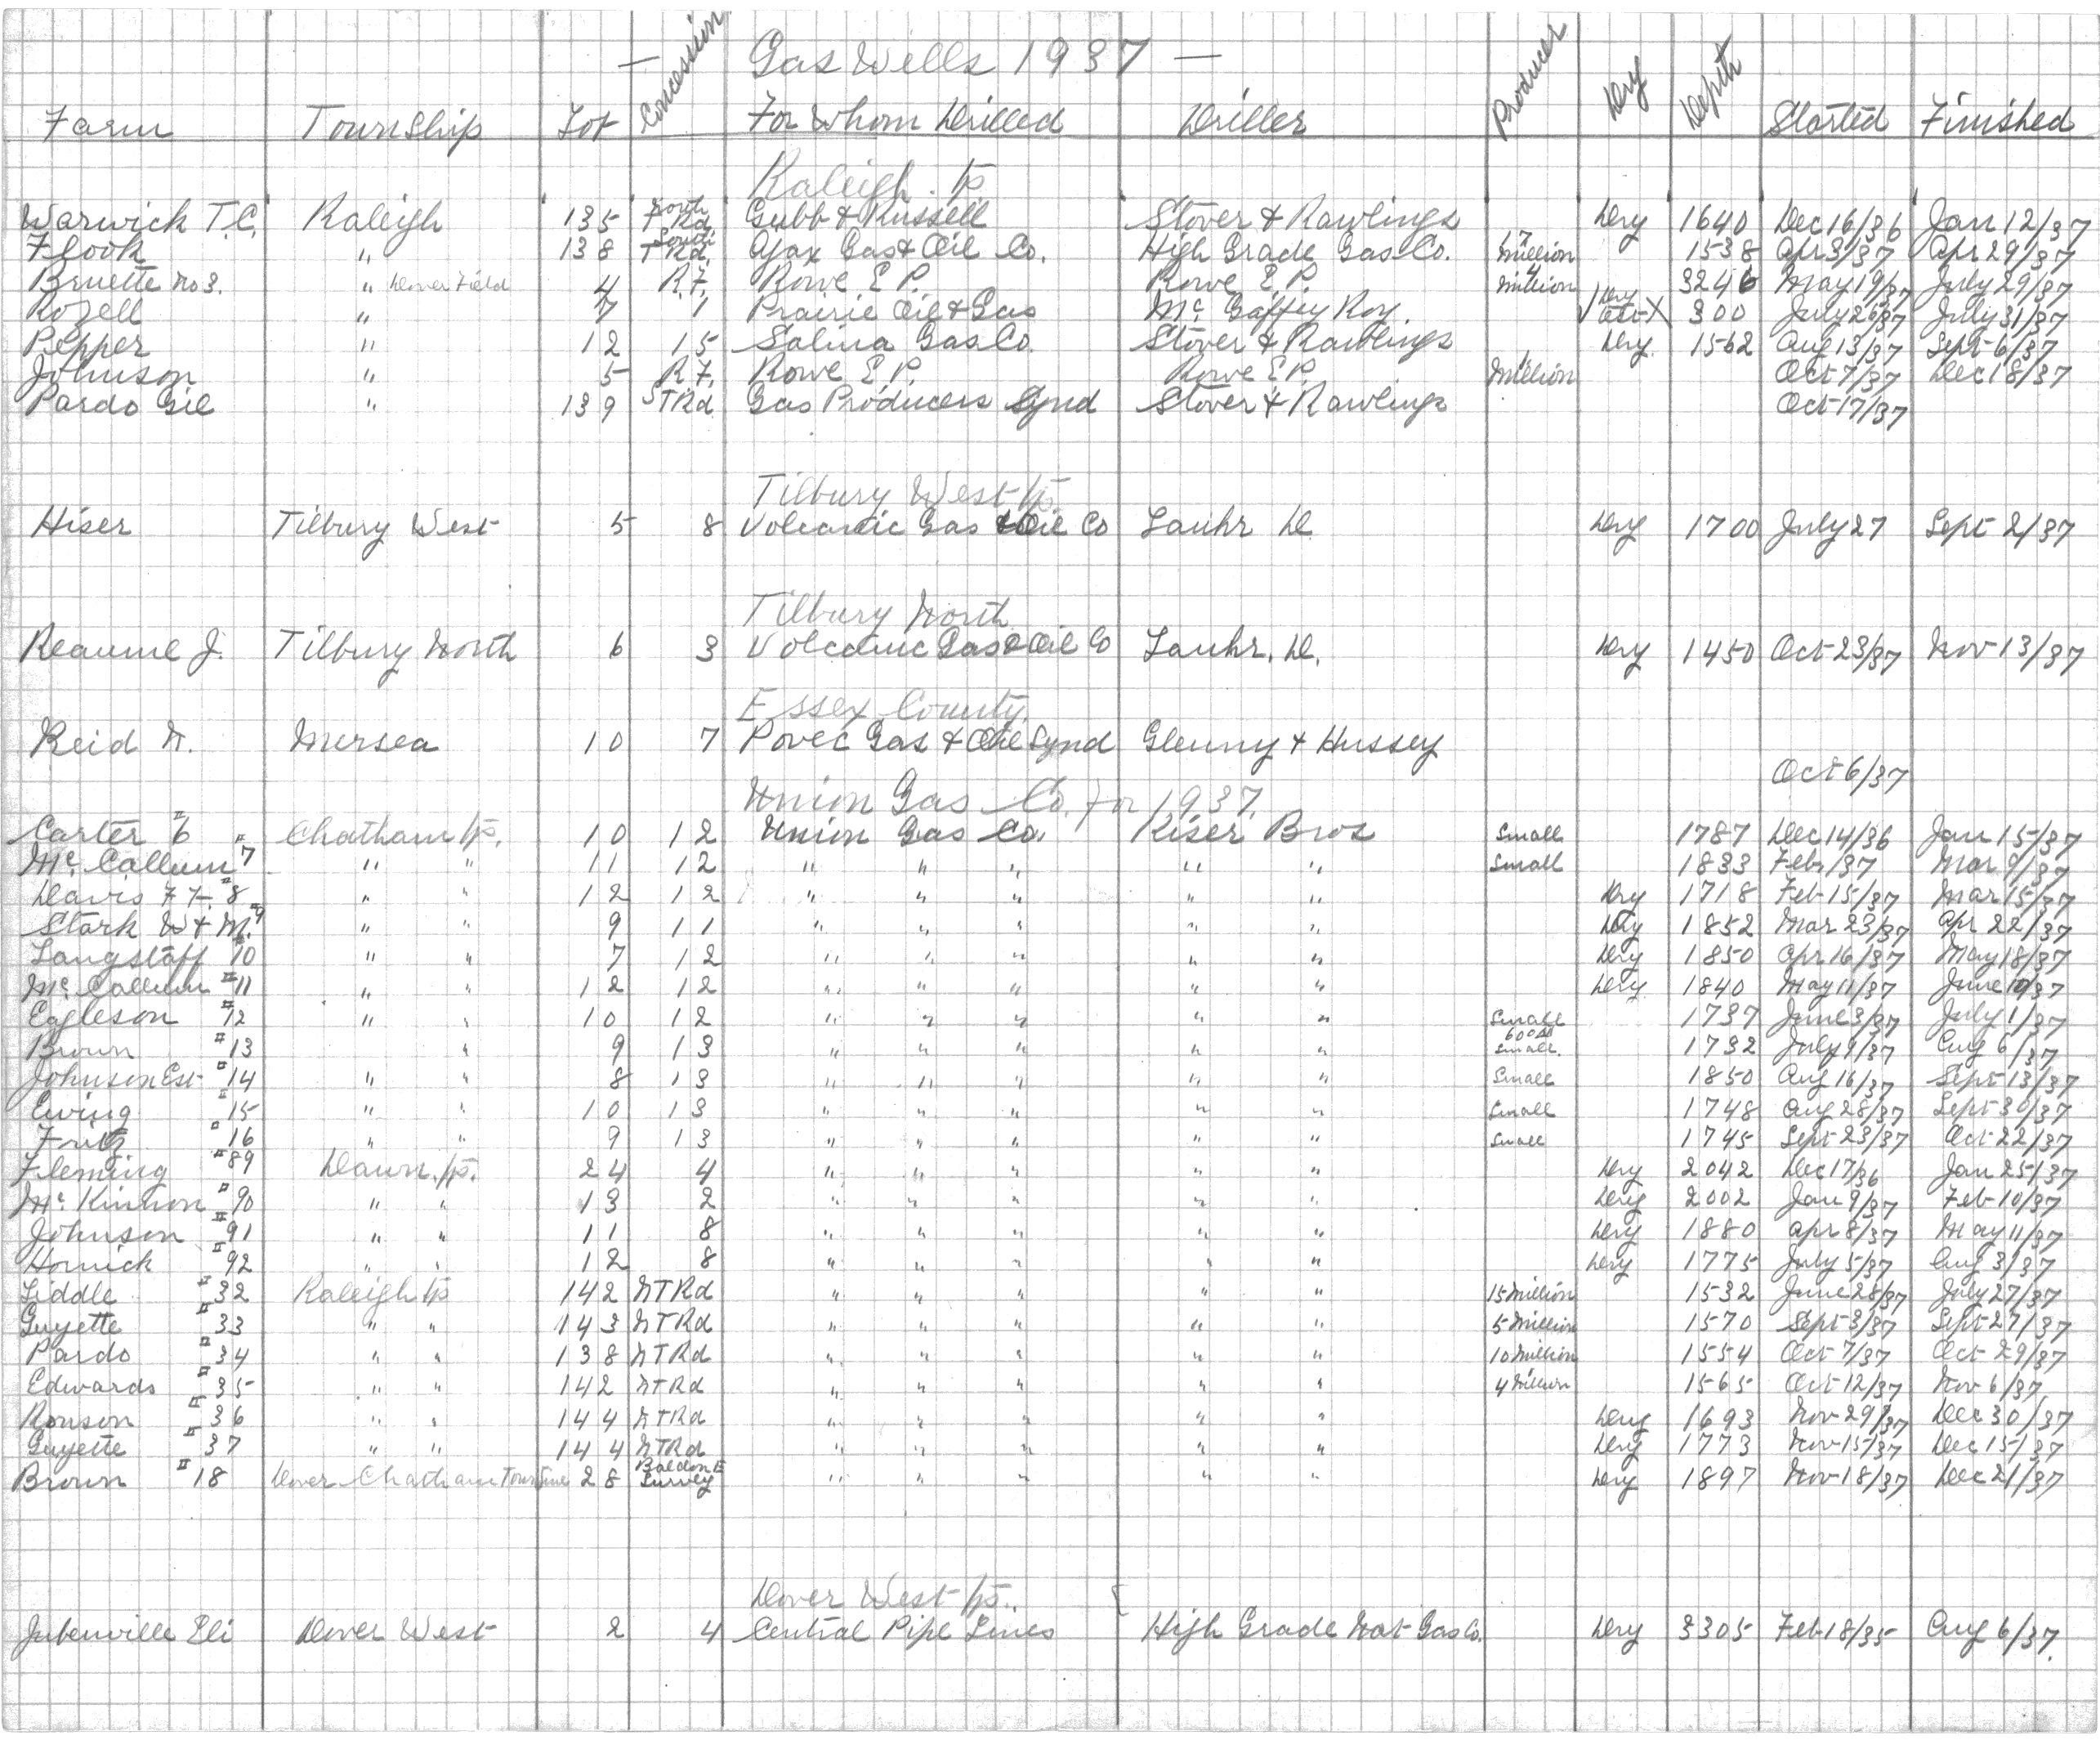 — Gas Wells 1937 —
Farm Township Lot Concession For Whom Drilled Driller Producer Dry Depth Started Finished
Raleigh Tp
Warwick T.C. Raleigh 135 North T Rd. Gubb & Russell Stover & Rawlings Dry 1640 Dec 16/36 Jan 12/37
Flook " 138 South T Rd. Ajax Gas & Oil Co. High Grade Gas Co. 17 Million 1538 Apr 3/37 Apr 29/37
Bruette No 3. " Dover Field 4 R.7. Rowe E P. Rowe E. P. 4 Million 3246 May 19/37 July 29/37
Rozell " 7 1 Prairie Oil & Gas Mc Gaffey Roy. Dry 300 July 26/37 July 31/37
Pepper " 12 15 Salina Gas Co. Stover & Rawlings Dry 1562 Aug 13/37 Sept 6/37
Johnson " 5 R 7. Rowe E P. Rowe E P. 1 Million Oct 7/37 Dec 18/37
Pardo Gil " 139 S T Rd Gas Producers Synd Stover & Rawlings Oct 17/37
Tilbury West Tp.
Hiser Tilbury West 5 8 Volcanic Gas & Oil Co Lauhr D 1700 Dry July 27 Sept 2/37
Tilbury North
Reaume J. Tilbury North 6 3 Volcanic Gas & Oil Co Lauhr, D. Dry 1450 Oct 23/37 Nov 13/37
Essex County
Reid N. Mersea 10 7 Povec Gas & Oil Synd Glenny & Hussey
Oct 6/37
Union Gas Co. for 1937.
Carter #6 Chatham Tp. 10 12 Union Gas Co. Kiser Bros Small 1787 Dec 14/36 Jan 15/37
Mc Callum #7 " " 11 12 " " " " " Small 1833 Feb. /37 Mar 9/37
Davis F F. #8 " " 12 12 " " " " " Dry 1718 Feb 15/37 Mar 15/37
Stark W & M. #9 " " 9 11 " " " " " Dry 1852 Mar 23/37 Apr 22/37
Langstaff #10 " " 7 12 " " " " " Dry 1850 Apr 16/37 May 18/37
Mc Callum #11 " " 12 12 " " " " " Dry 1840 May 11/37 June 10/37
Eagleson #12 " " 10 12 " " " " " Small 1737 June 3/37 July 1/37
Brown #13 " 9 13 " " " " " 600 M Small. 1732 July 9/37 Aug 6/37
Johnson Est #14 " " 8 13 " " " " " Small 1850 Aug 16/37 Sept 13/37
Ewing #15 " " 10 13 " " " " " Small 1748 Aug 28/37 Sept 30/37
Fritz #16 " " 9 13 " " " " " Small 1745 Sept 23/37 Oct 22/37
Fleming #89 Dawn Tp. 24 4 " " " " " Dry 2042 Dec 17/36 Jan 25/37
Mc Kinnon #90 " " 13 2 " " " " " Dry 2002 Jan 9/37 Feb 10/37
Johnson #91 " " 11 8 " " " " " Dry 1880 Apr 8/37 May 11/37
Hornick #92 " " 12 8 " " " " " Dry 1775 July 5/37 Aug 3/37
Liddle #32 Raleigh Tp 142 N T Rd " " " " " 15 Million 1532 June 28/37 July 27/37
Guyette #33 " " 143 N T Rd " " " " " 5 Million 1570 Sept 3/37 Sept 27/37
Pardo #34 " " 138 N T Rd " " " " " 10 Million 1554 Oct 7/37 Oct 29/37
Edwards #35 " " 142 N T Rd " " " " " 4 Million 1565 Oct 12/37 Nov 6/37
Ronson #36 " " 144 N T Rd " " " " " Dry 1693 Nov 29/37 Dec 30/37
Guyette #37 " " 144 N T Rd " " " " " Dry 1773 Nov 15/37 Dec 15/37
Brown #18 Dover Chatham Town Line 28 Baldon E Survey " " " " " Dry 1897 Nov 18/37 Dec 21/37
Dover West Tp.
Jubenville Eli Dover West 2 4 Central Pipe Lines High Grade Nat Gas Co. Dry 3305 Feb 18/35 Aug 6/37.